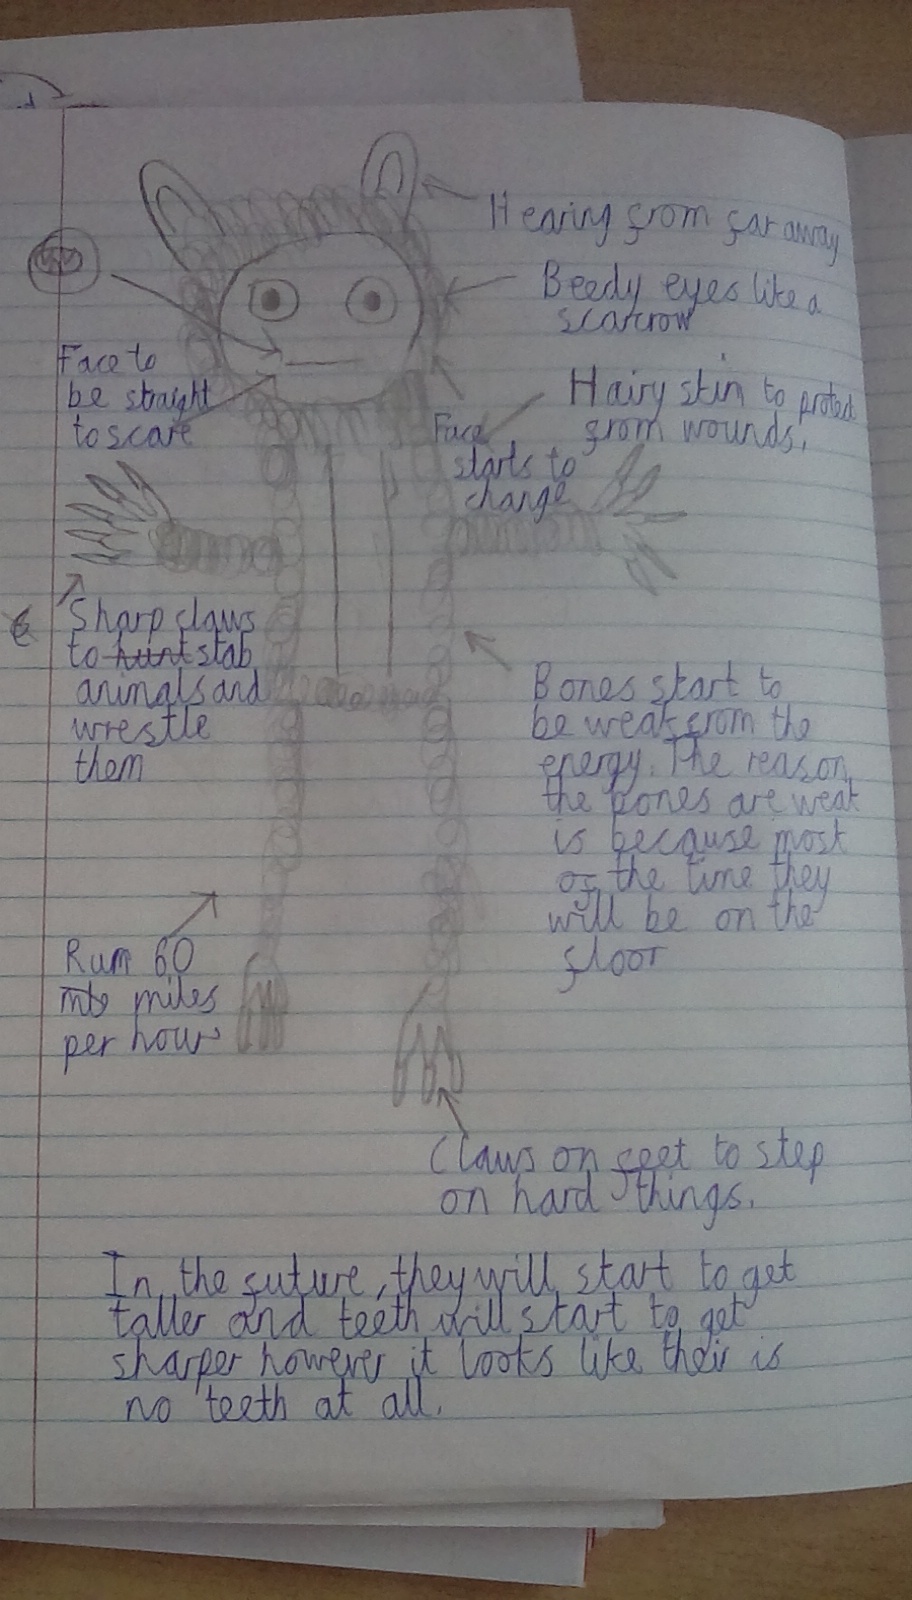 Hearing from far away
Beedy eyes like a
scarcrow
Face to
be straight
to scare
Hairy skin to protect
from wounds.
Face
starts to
change
Sharp claws
to hunt stab
animals and
wrestle
them
Bones start to
be weak from the
energy. The reason
the bones are weak
is because most
of the time they
will be on the
floor
Run 60
miles
per hour
Claws on feet to step
on hard things.
In the future, they will start to get
taller and teeth will start to get
sharper however it looks like their is
no teeth at all.